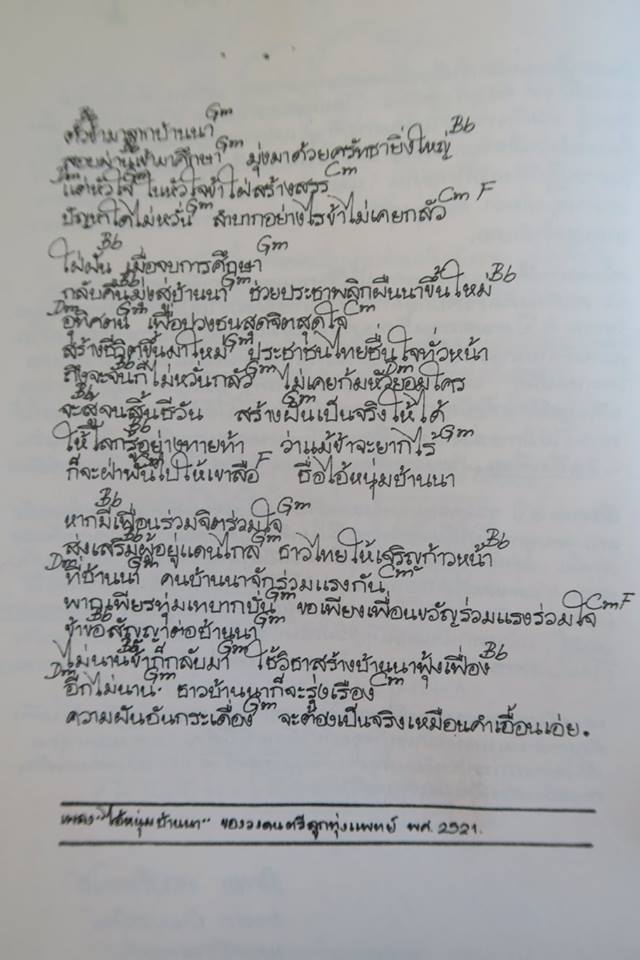 ตัวข้ามาจากบ้านนา Gm
สอบผ่านเข้ามาศึกษา Gm มุ่งมาด้วยศรัทธายิ่งใหญ่ Bb
Dm แต่หัวใจ Gm ในหัวใจข้าใฝ่สร้างสรร Cm
ปัญหาใดไม่หวั่น Gm ลำบากอย่างไรข้าไม่เคยกลัว Cm F
ใฝ่ฝัน Bb เมื่อจบการศึกษา Gm
กลับคืนมุ่งสู่บ้านนา Bb Gm ช่วยประชาพลิกผืนนาขึ้นใหม่ Bb
Dm อุทิศตน Gm เพื่อปวงชนสุดจิตสุดใจ Cm
สร้างชีวิตขึ้นมาใหม่ Gm ประชาชนไทยชื่นใจทั่วหน้า
ถึงจะจนก็ไม่หวั่นกลัว Bb Gm ไม่เคยก้มหัวยอมใคร Dm
จะสู้จนสิ้นชีวัน Bb สร้างฝันเป็นจริงให้ได้ Gm
ให้โลกรู้อย่างทายท้า ว่าแม้ข้าจะยากไร้ Gm
ก็จะฝ่าฟันไปให้เขาลือ F ชื่อไอ้หนุ่มบ้านนา
หากมีเพื่อนร่วมจิตร่วมใจ Bb Gm
ส่งเสริมผู้อยู่แดนไกล Bb Gm ชาวไทยให้เจริญก้าวหน้า Bb
Dm ที่บ้านนา Gm คนบ้านนาจักร่วมแรงกัน Cm
พากเพียรทุ่มเทบากบั่น Gm ขอเพียงเพื่อนขวัญร่วมแรงร่วมใจ Cm F
ข้าขอสัญญาต่อบ้านนา Gm
ไม่นานข้าก็กลับมา Bb Gm ใช้วิชาสร้างบ้านนาฟุ้งเฟื่อง Bb
Dm อีกไม่นาน Gm ชาวบ้านนาก็จะรุ่งเรือง Cm
ความฝันอันกระเดื่อง Gm จะต้องเป็นจริงเหมือนคำเอื้อนเอ่ย.
เพลง "ไอ้หนุ่มบ้านนา" ของวงดนตรีลูกทุ่งแพทย์ พศ. 2521.